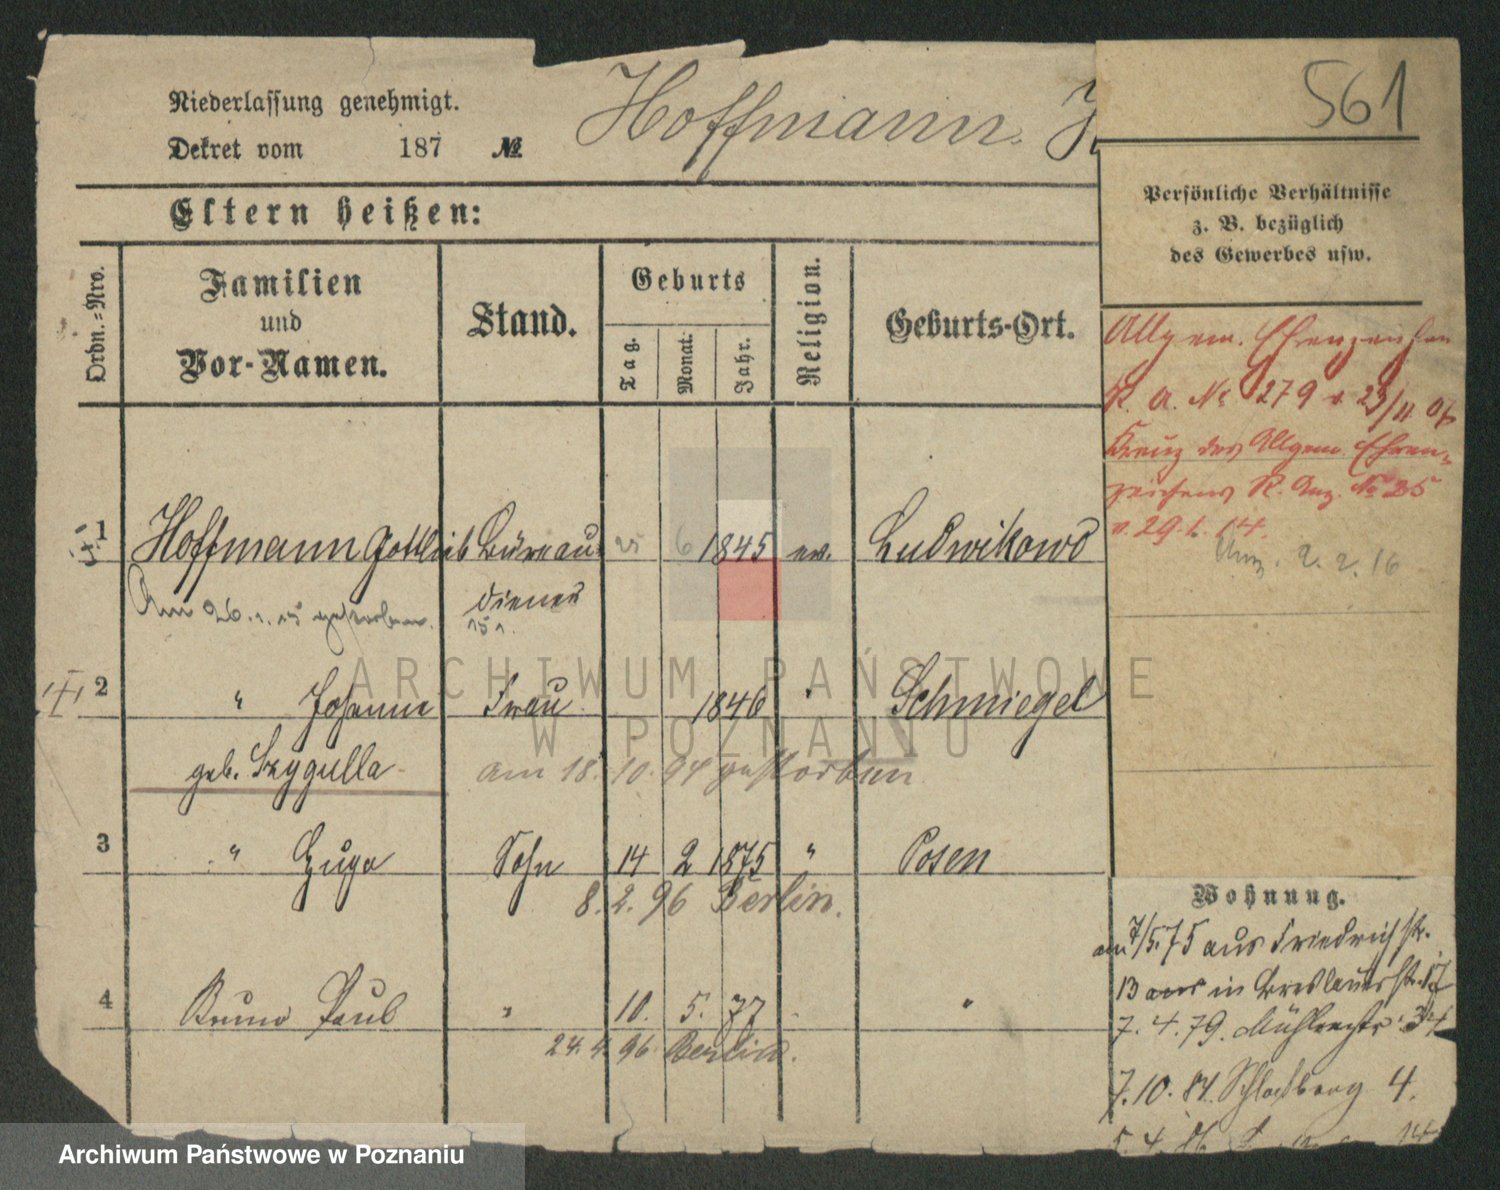 561
Niederlassung genehmigt.
Hoffmann.
Dekret vom 187 №
Persönliche Verhältnisse
z. B. bezüglich
des Gewerbes usw.
Eltern heißen:
Ordn.=Nro.
Familien
und
Vor-Namen.
Stand.
Geburts
Tag.
Monat.
Jahr.
Religion.
Geburts-Ort.
Allgem. Ehrenzeichen
R. A. № 279 v 23/11 07
Kreuz des Allgem. Ehren-
zeichens R. Anz. № 25
v. 29.1.14.
2. 2. 16
1 Hoffmann Gottlieb Büreau- 25 6 1845 ev. Ludwikowo
diener
Am 26.1.15 gestorben.
151.
2 " Johanna Frau 1846 " Schmiegel
geb. Szygulla
am 18. 10. 94 gestorben
3 " Hugo Sohn 14 2 1875 " Posen
8. 2. 96 Berlin.
4 Bruno Paul " 10. 5. 77 "
24. 4. 96 Berlin.
Wohnung.
am 7/5.75 aus Friedrichstr.
13 aus in Breslauerstr. 17
7. 4. 79. Mühlenstr. 34
7. 10. 84. Schloßberg 4.
ARCHIWUM PAŃSTWOWE
W POZNANIU
Archiwum Państwowe w Poznaniu